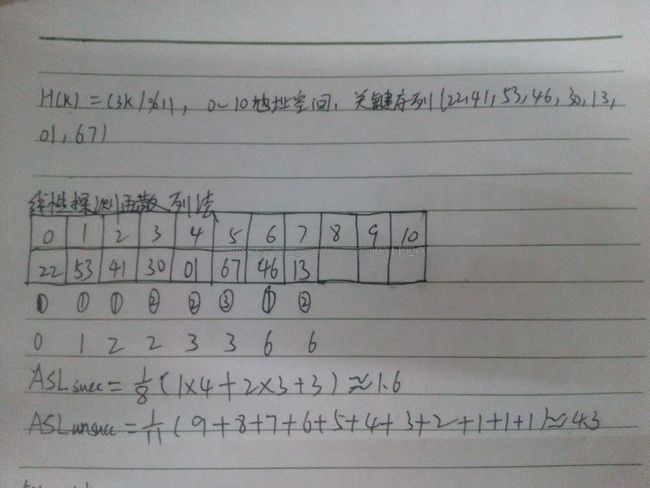 H(K) = (3K)%11, 0~10地址空间, 关键序列(22,41,53,46,30,13,
01,67)
线性探测再散列法
0 1 2 3 4 5 6 7 8 9 10
22 53 41 30 01 67 46 13
① ① ① ② ② ③ ① ②
0 1 2 2 3 3 6 6
ASLsucc = 1/8 (1×4+2×3+3) ≈1.6
ASLunsucc = 1/11 (9+8+7+6+5+4+3+2+1+1+1) ≈ 4.3